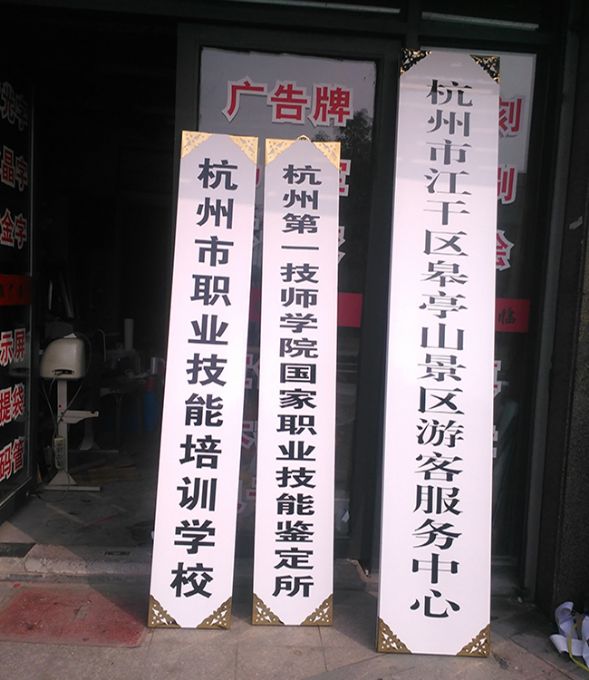 杭州市职业技能培训学校
杭州第一技师学院国家职业技能鉴定所
杭州市江干区皋亭山景区游客服务中心
广告牌
刻
晶字
金字
示屏
提袋
临